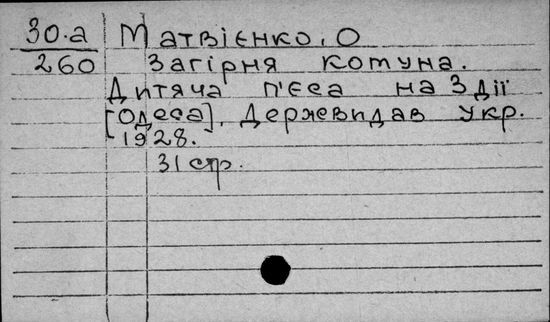 30.а Матвієнко, О
260 Загірня котуна.
Дитяча п'єса на 3 дії
[Одеса], Держвидав Укр.
1928.
31 стр.